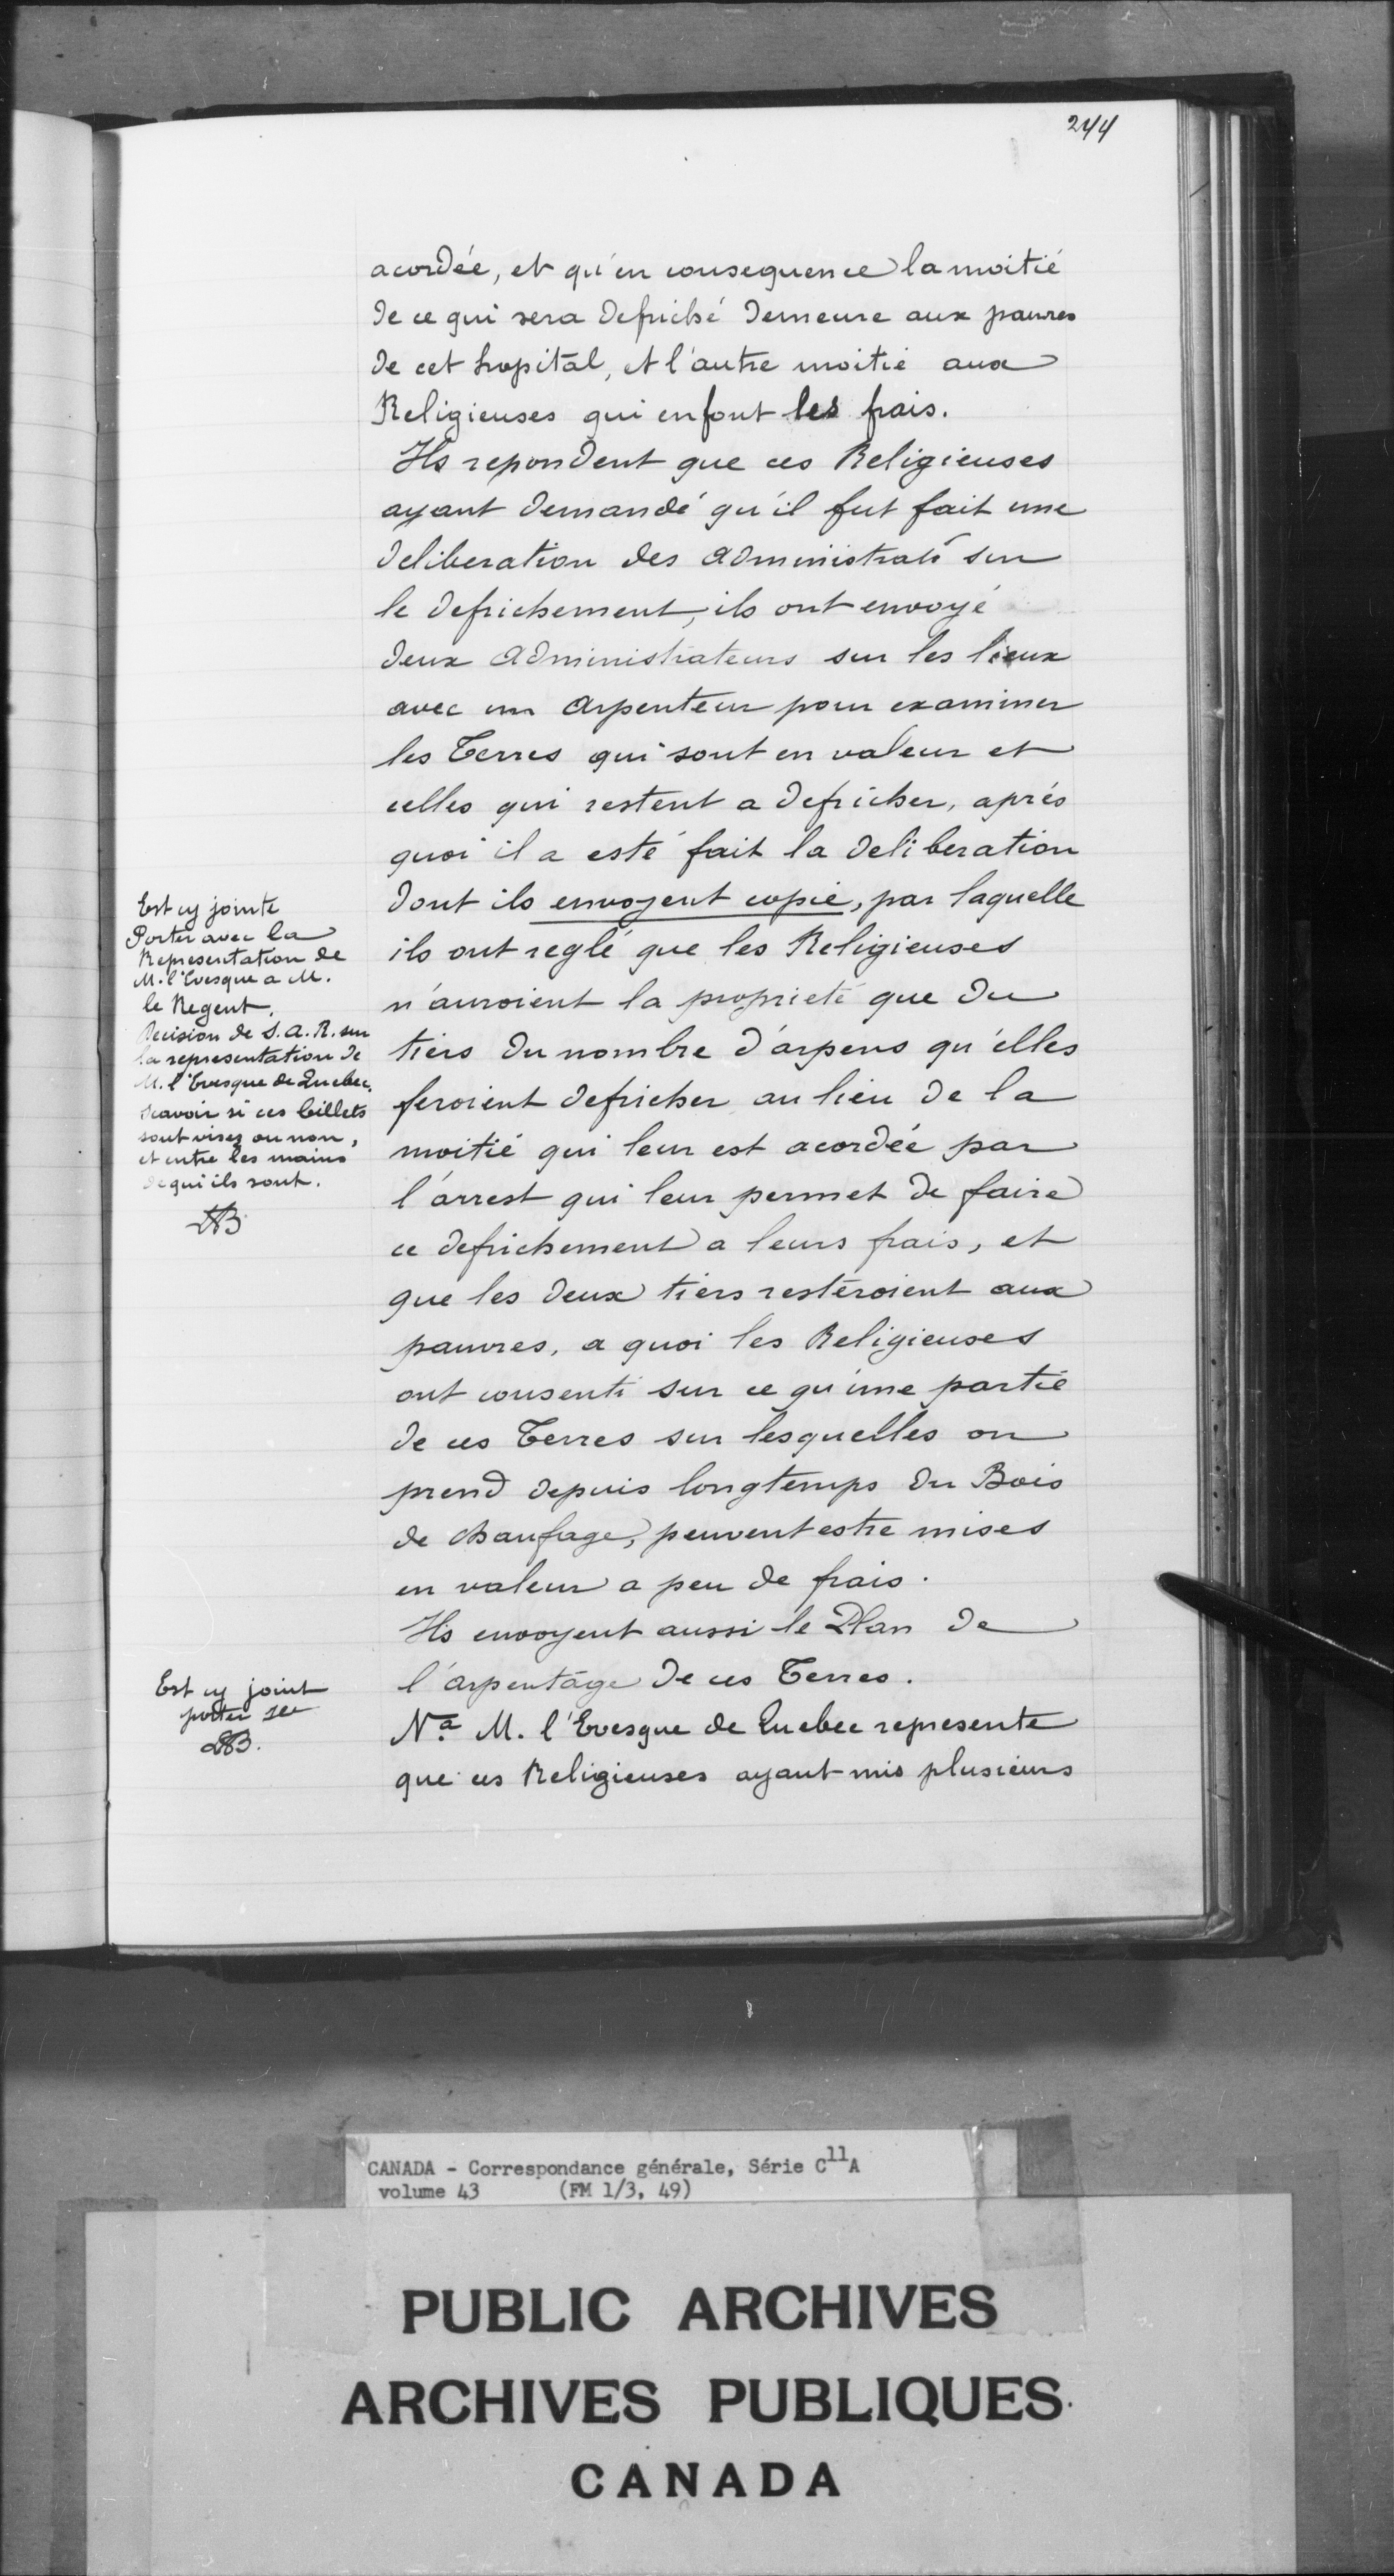 244
acordée, et qu'en consequence la moitié
de ce qui sera defriché demeure aux pauvres
de cet hopital, et l'autre moitié aux
Religieuses qui en font les frais.
Ils repondent que ces Religieuses
ayant demandé qu'il fut fait une
deliberation des administrats sur
le defrichement, ils ont envoyé
deux administrateurs sur les lieux
avec un arpenteur pour examiner
les Terres qui sont en valeur et
celles qui restent a defricher, aprés
quoi il a esté fait la deliberation
dont ils envoyent copie, par laquelle
ils ont reglé que les Religieuses
n'auroient la proprieté que du
tiers du nombre d'arpens qu'elles
feroient defricher au lieu de la
moitié qui leur est acordée par
l'arrest qui leur permet de faire
ce defrichement a leurs frais, et
que les deux tiers resteroient aux
pauvres, a quoi les Religieuses
ont consenti sur ce qu'une partie
de ces Terres sur lesquelles on
prend depuis longtemps du Bois
de chaufage, peuvent estre mises
en valeur a peu de frais.
Ils envoyent aussi le Plan de
l'arpentage de ces Terres.
Na. M. l'Evesque de Quebec represente
que ces Religieuses ayant mis plusieurs
Est cy jointe
Porter avec la
Representation de
M. l'Evesque a M.
le Regent.
Decision de S. A. R. sur
la representation de
M. l'Evesque de Quebec.
scavoir si ces billets
sont visez ou non,
et entre les mains
de qui ils sont.
LAB
Est cy joint
porter
LAB.
CANADA - Correspondance générale, Série C11A
volume 43 (FM 1/3, 49)
PUBLIC ARCHIVES
ARCHIVES PUBLIQUES
CANADA